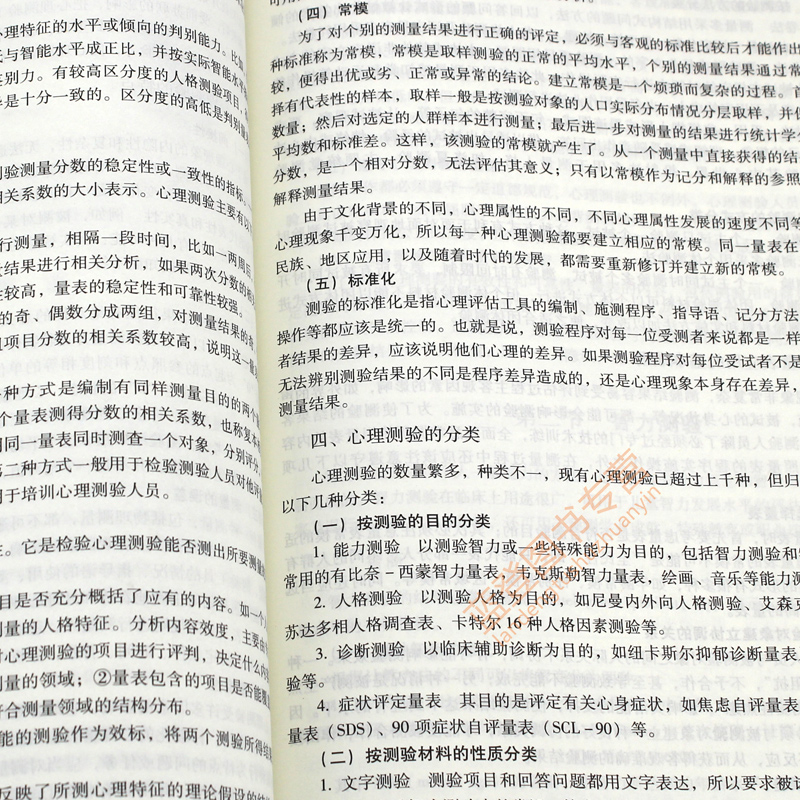 心理特征的水平或倾向的判别能力。比如
与智能水平成正比，并按实际智能水平
别力。有较高区分度的人格测验项目，
是十分一致的。区分度的高低是判别量
验测量分数的稳定性或一致性的指标
相关系数的大小表示。心理测验主要有以
行测量，相隔一段时间，比如一两周后
结果进行相关分析，如果两次分数的相
性较高，量表的稳定性和可靠性较强。
的奇、偶数分成两组，对测量结果的奇
项目分数的相关系数较高，说明这一量
种方式是编制有同样测量目的的两个
个量表测得分数的相关系数，也称复本
用同一量表同时测查一个对象，分别评分
第二种方式一般用于检验测验人员对他评
用于培训心理测验人员。
它是检验心理测验能否测出所要测量
目是否充分概括了应有的内容。如一个
测量的人格特征。分析内容效度，主要由
对心理测验的项目进行评判，决定什么内
测量的领域；②量表包含的项目是否能覆
符合测量领域的结构分布。
能的测验作为效标，将两个测验所得结
反映了所测心理特征的理论假设的结
（四）常模
为了对个别的测量结果进行正确的评定，必须与客观的标准比较后才能作出
种标准称为常模，常模是取样测验的正常的平均水平，个别的测量结果通过常
较，便得出优或劣、正常或异常的结论。建立常模是一个烦琐而复杂的过程。首
择有代表性的样本，取样一般是按测验对象的人口实际分布情况分层取样，并
数量；然后对选定的人群样本进行测量；最后进一步对测量的结果进行统计学
平均数和标准差。这样，该测验的常模就产生了。从一个测量中直接获得的结
分数，是一个相对分数，无法评估其意义；只有以常模作为记分和解释的参照
解释测量结果。
由于文化背景的不同，心理属性的不同，不同心理属性发展的速度不同等
心理现象千变万化，所以每一种心理测验都要建立相应的常模。同一量表在
民族、地区应用，以及随着时代的发展，都需要重新修订并建立新的常模。
（五）标准化
测验的标准化是指心理评估工具的编制、施测程序、指导语、记分方法
操作等都应该是统一的。也就是说，测验程序对每一位受测者来说都是一样
者结果的差异，应该说明他们心理的差异。如果测验程序对每位受试者不是
无法辨别测验结果的不同是程序差异造成的，还是心理现象本身存在差异，
测量结果。
四、心理测验的分类
心理测验的数量繁多，种类不一，现有心理测验已超过上千种，但归
以下几种分类：
（一）按测验的目的分类
1. 能力测验　以测验智力或一些特殊能力为目的，包括智力测验和
常用的有比奈－西蒙智力量表、韦克斯勒智力量表，绘画、音乐等能力测
2. 人格测验　以测验人格为目的，如尼曼内外向人格测验、艾森克
苏达多相人格调查表、卡特尔 16 种人格因素测验等。
3. 诊断测验　以临床辅助诊断为目的，如纽卡斯尔抑郁诊断量表、
验等。
4. 症状评定量表　其目的是评定有关心身症状，如焦虑自评量表
量表（SDS）、90 项症状自评量表（SCL－90）等。
（二）按测验材料的性质分类
1. 文字测验　测验项目和回答问题都用文字表达，所以要求被